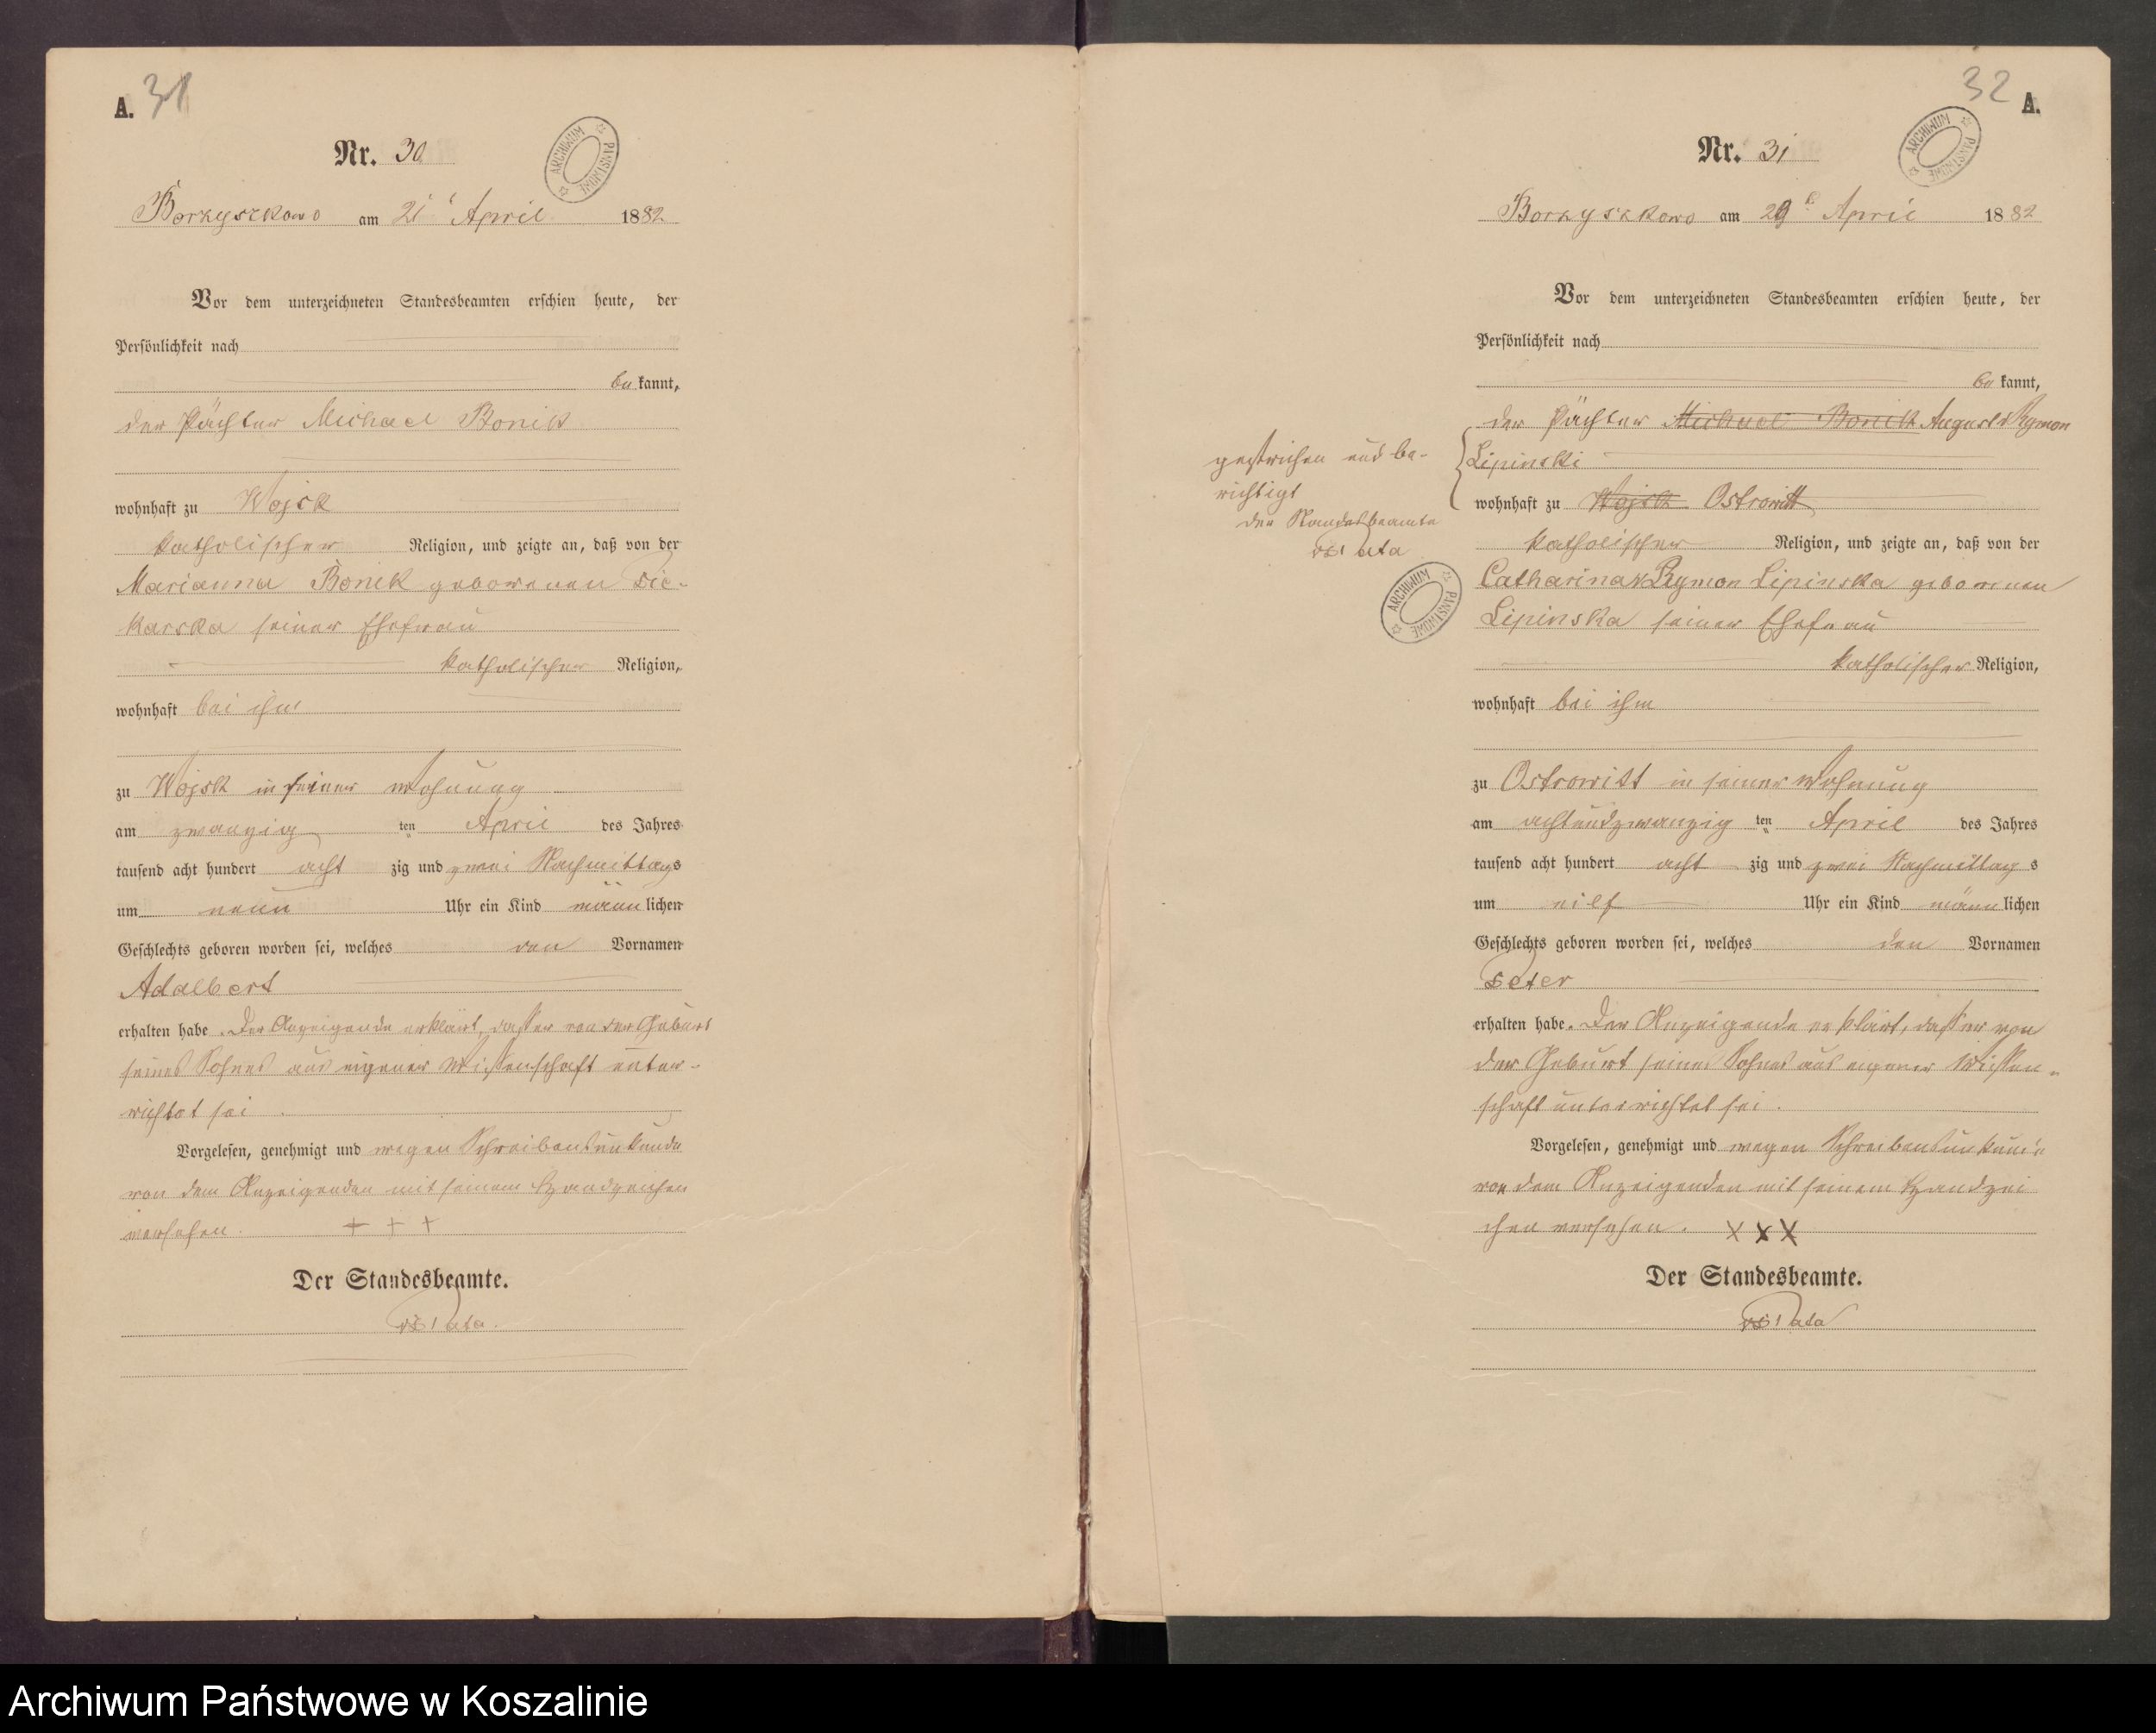 A. 31
Nr. 30
ARCHIWUM PAŃSTWOWE
Borzyszkowo am 21 April 1882
Vor dem unterzeichneten Standesbeamten erschien heute, der
Persönlichkeit nach
bekannt,
der Pächter Michael Bonik
wohnhaft zu Wojsk
katholischer Religion, und zeigte an, daß von der
Marianna Bonik geborenen Pie-
karska seiner Ehefrau
katholischer Religion,
wohnhaft bei ihm
zu Wojsk in seiner Wohnung
am zwanzig ten April des Jahres
tausend acht hundert acht zig und zwei Nachmittags
um neun Uhr ein Kind männlichen
Geschlechts geboren worden sei, welches den Vornamen
Adalbert
erhalten habe. Der Anzeigende erklärt, daß er von der Geburt
seines Sohnes aus eigener Wissenschaft unter-
richtet sei.
Vorgelesen, genehmigt und wegen Schreibensunkunde
von dem Anzeigenden mit seinem Handzeichen
versehen. + + +
Der Standesbeamte.
32 A.
Nr. 31
ARCHIWUM PAŃSTWOWE
Borzyszkowo am 29t April 1882
Vor dem unterzeichneten Standesbeamten erschien heute, der
Persönlichkeit nach
bekannt,
der Pächter Michael Bonik August v Rymon
Lipinski
wohnhaft zu Wojsk Ostrowitt
gestrichen und be-
richtigt
der Standesbeamte
ARCHIWUM PAŃSTWOWE
katholischer Religion, und zeigte an, daß von der
Catharina v Rymon Lipinska geborenen
Lipinska seiner Ehefrau
katholischer Religion,
wohnhaft bei ihm
zu Ostrowitt in seiner Wohnung
am achtundzwanzig ten April des Jahres
tausend acht hundert acht zig und zwei Nachmittags
um eilf Uhr ein Kind männlichen
Geschlechts geboren worden sei, welches den Vornamen
Peter
erhalten habe. Der Anzeigende erklärt, daß er von
der Geburt seines Sohnes aus eigener Wissen-
schaft unterrichtet sei.
Vorgelesen, genehmigt und wegen Schreibensunkunde
von dem Anzeigenden mit seinem Handzei
chen versehen. X X X
Der Standesbeamte.
Archiwum Państwowe w Koszalinie